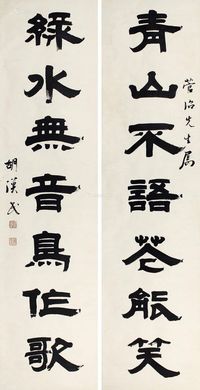 青山不語花能笑
菅滔先生屬
綠水無音鳥作歌
胡漢民